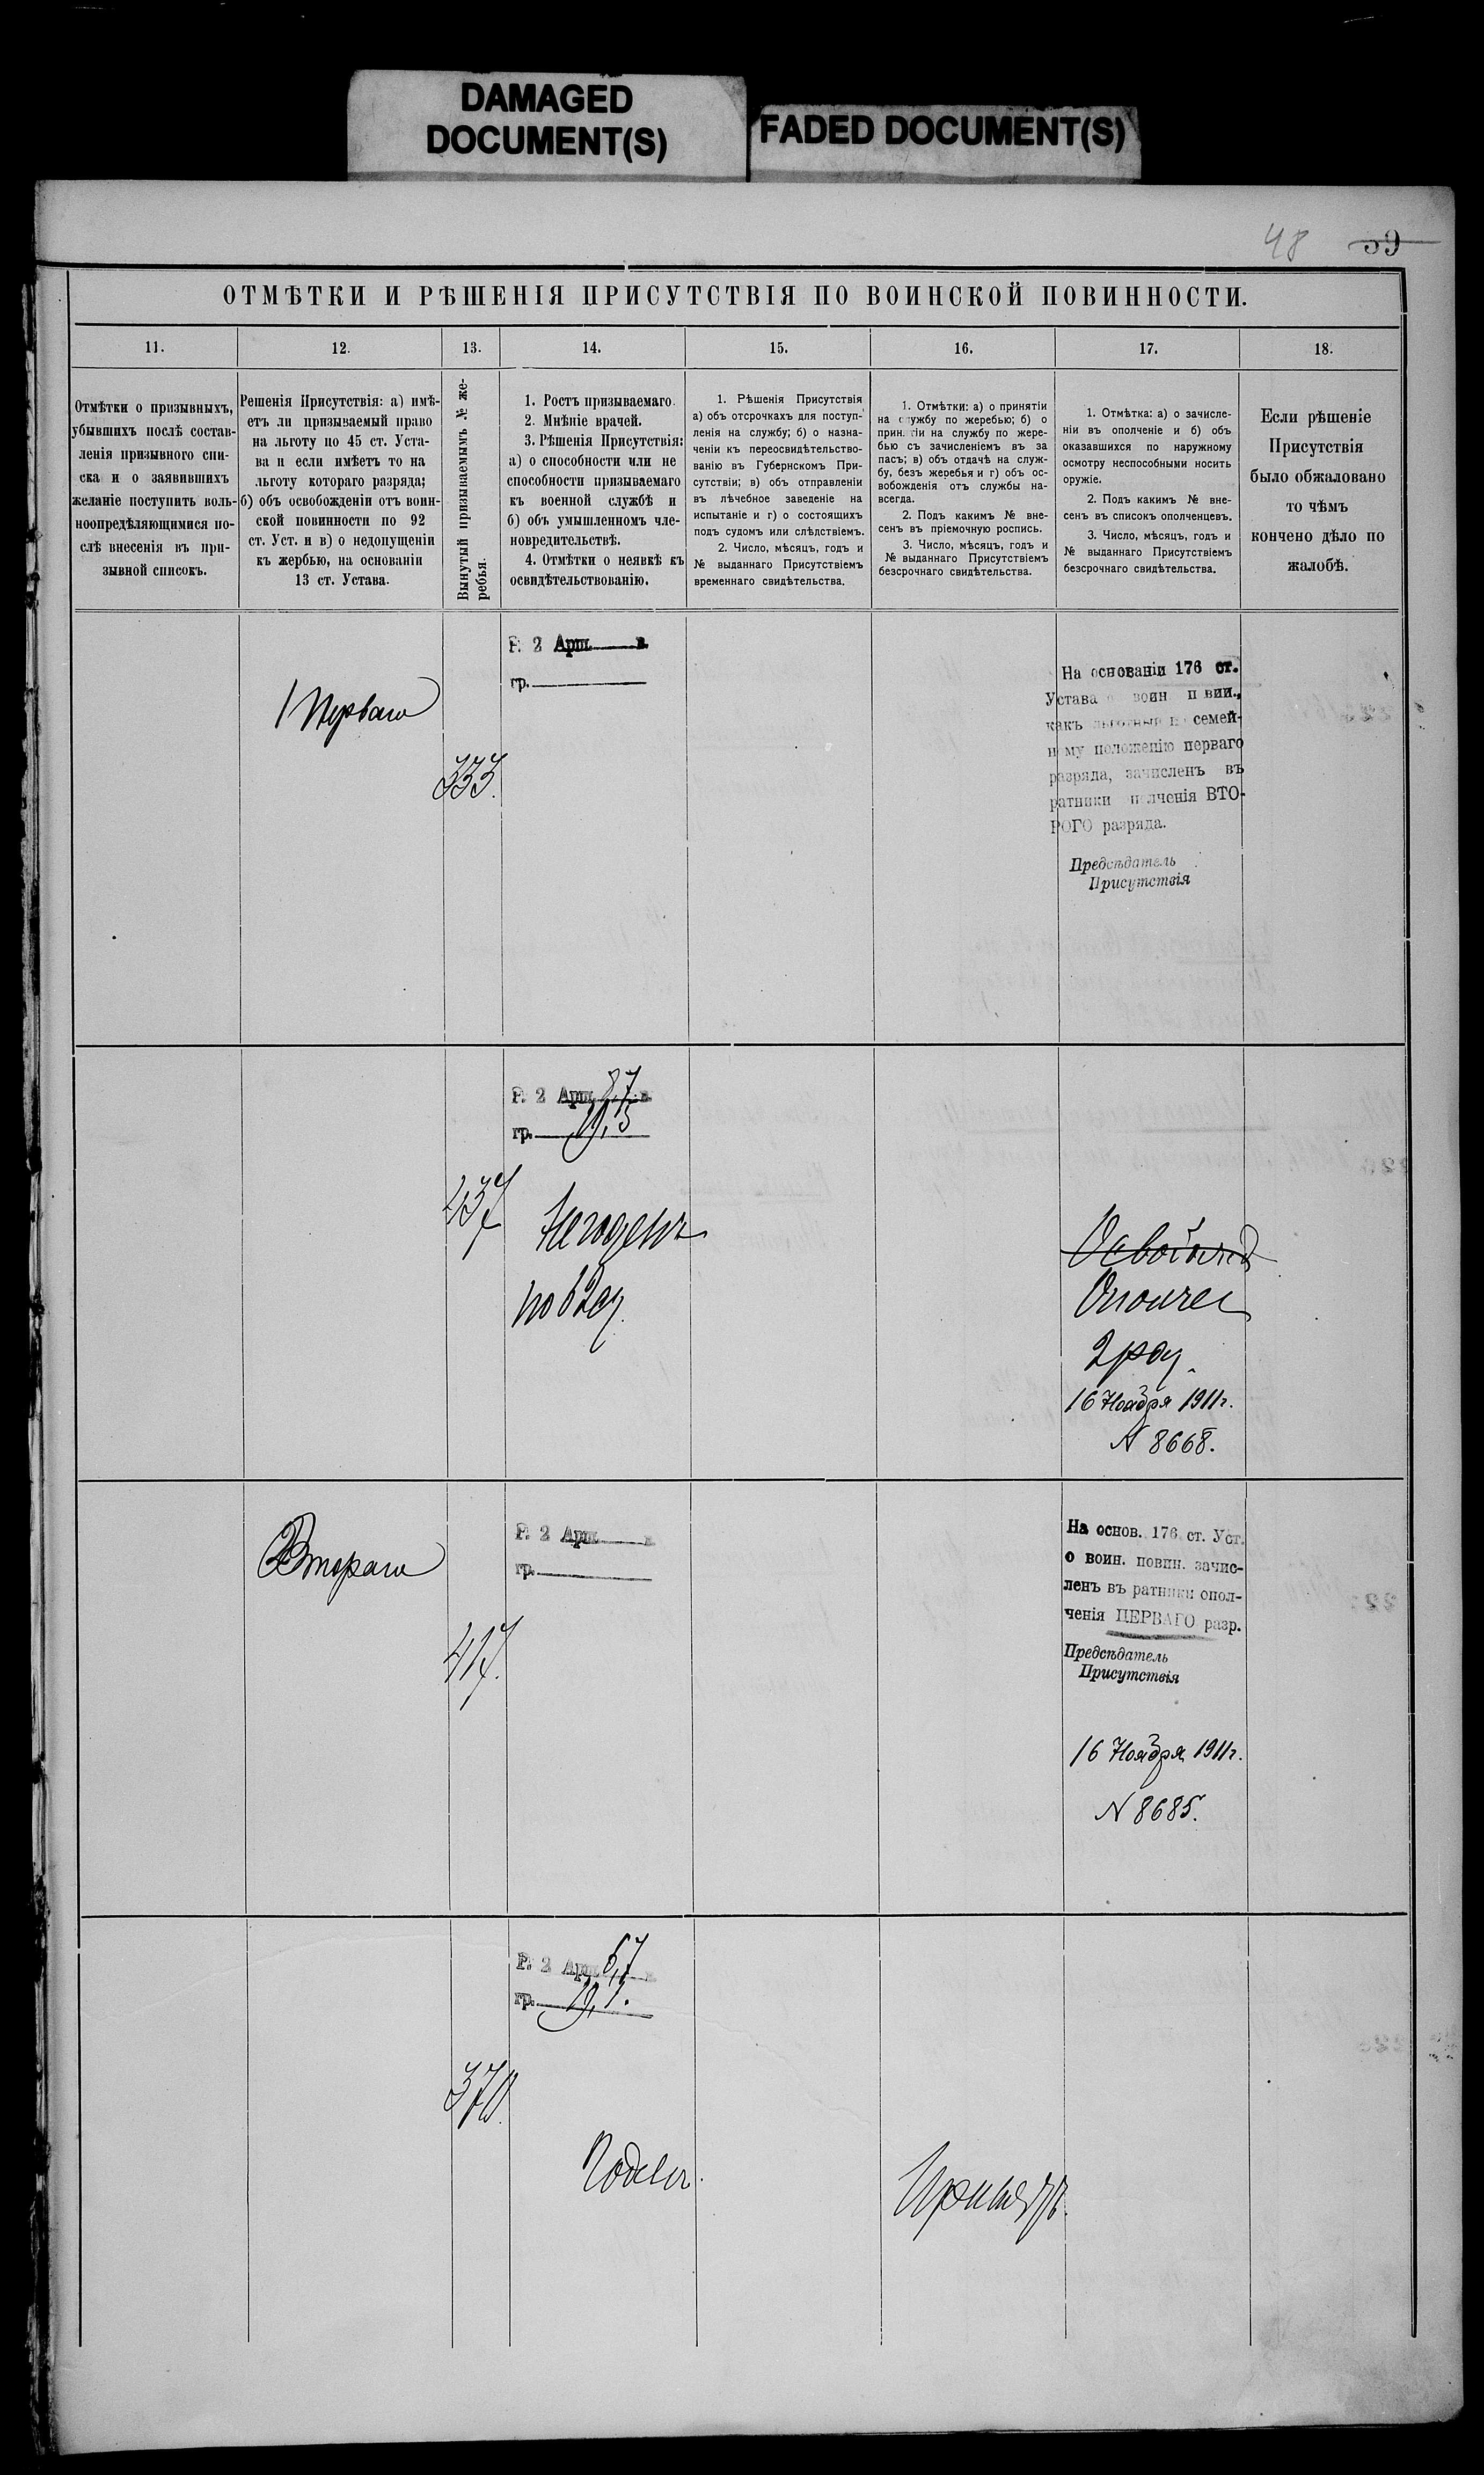 DAMAGED
DOCUMENT(S)
FADED DOCUMENT(S)
48 59
ОТМѢТКИ И РѢШЕНІЯ ПРИСУТСТВІЯ ПО ВОИНСКОЙ ПОВИННОСТИ.
11.
12.
13.
14.
15.
16.
17.
18.
Отмѣтки о призывныхъ,
убывшихъ послѣ состав-
ленія призывного спи-
ска и о заявившихъ
желаніе поступить воль-
ноопредѣляющимися по-
слѣ внесенія въ при-
зывной списокъ.
Решенія Присутствія: а) имѣ-
етъ ли призываемый право
на льготу по 45 ст. Уста-
ва и если имѣетъ то на
льготу котораго разряда;
б) объ освобожденіи отъ воин-
ской повинности по 92
ст. Уст. и в) о недопущеніи
къ жербью, на основаніи
13 ст. Устава.
Вынутый призываемымъ № же-
ребья.
1. Ростъ призываемаго.
2. Мнѣніе врачей.
3. Рѣшенія Присутствія:
а) о способности или не
способности призываемаго
къ военной службѣ и
б) объ умышленномъ чле-
новредительствѣ.
4. Отмѣтки о неявкѣ къ
освидѣтельствованію.
1. Рѣшенія Присутствія
а) объ отсрочкахъ для поступ-
ленія на службу; б) о назна-
ченіи къ переосвидѣтельство-
ванію въ Губернскомъ При-
сутствіи; в) объ отправленіи
въ лѣчебное заведеніе на
испытаніе и г) о состоящихъ
подъ судомъ или слѣдствіемъ.
2. Число, мѣсяцъ, годъ и
№ выданнаго Присутствіемъ
временнаго свидѣтельства.
1. Отмѣтки: а) о принятіи
на службу по жеребью; б) о
принятіи на службу по жере-
бью съ зачисленіемъ въ за
пасъ; в) объ отдачѣ на служ-
бу, безъ жеребья и г) объ ос-
вобожденія отъ службы на-
всегда.
2. Подъ какимъ № вне-
сенъ въ пріемочную роспись.
3. Число, мѣсяцъ, годъ и
№ выданнаго Присутствіемъ
безсрочнаго свидѣтельства.
1. Отмѣтка: а) о зачисле-
ніи въ ополченіе и б) объ
оказавшихся по наружному
осмотру неспособными носить
оружіе.
2. Подъ какимъ № вне-
сенъ въ списокъ ополченцевъ.
3. Число, мѣсяцъ, годъ и
№ выданнаго Присутствіемъ
безсрочнаго свидѣтельства.
Если рѣшеніе
Присутствія
было обжаловано
то чѣмъ
кончено дѣло по
жалобѣ.
1 Перваго
333.
Р. 2 Арш. в.
гр.
На основаніи 176 ст.
Устава о воин п вин.,
какъ льготный по семей-
н му положенію перваго
разряда, зачисленъ въ
ратники п лченія ВТО-
РОГО разряда.
Предсѣдатель
Присутствія
237
Р. 2 Арш. 8,7 в.
гр. 19,5
Негоденъ
Ополчен
2 раз.
16 Ноября 1911 г.
№ 8668.
Втораго
417.
Р. 2 Арш. в.
гр.
На основ. 176 ст. Уст.
о воин. повин. зачис-
ленъ въ ратники опол-
ченія ПЕРВАГО разр.
Предсѣдатель
Присутствія
16 Ноября 1911 г.
№ 8685.
370.
Р. 2 Арш. 6,7 в.
гр. 19,1.
Годенъ.
Принятъ.